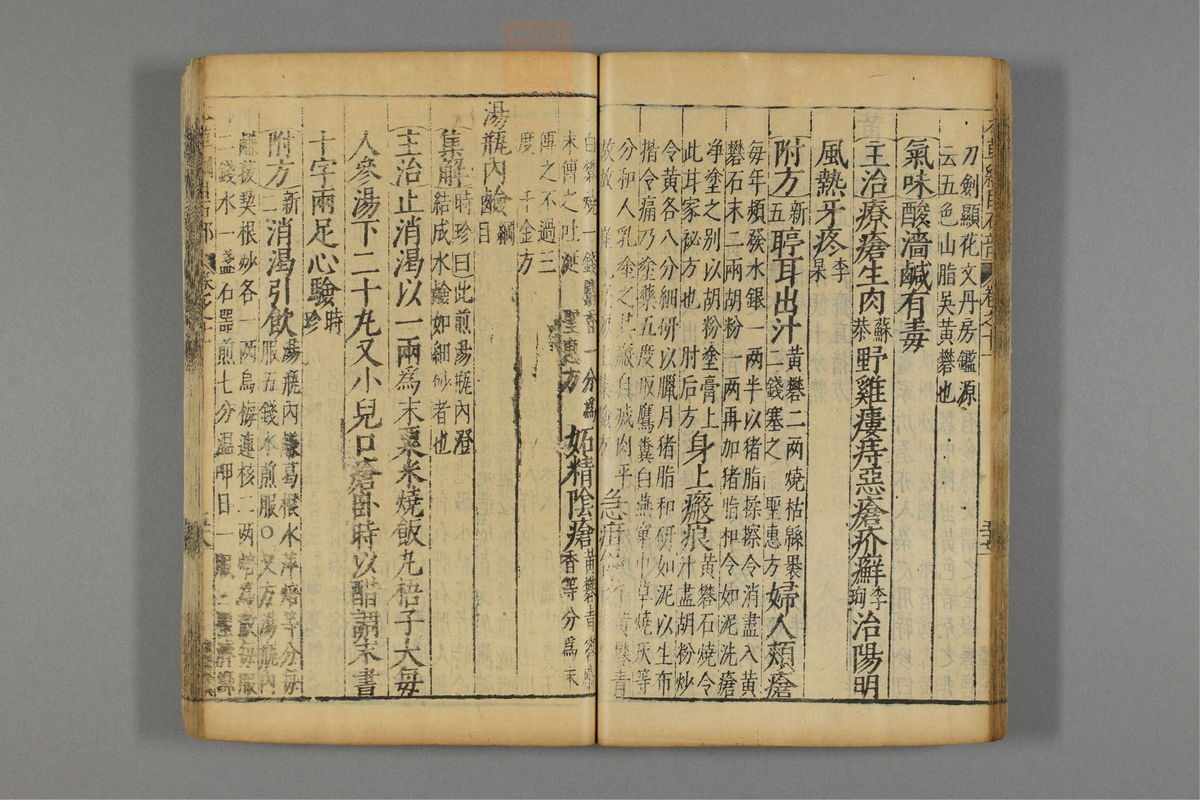 刀劍顯花文丹房鑑源
云五色山脂吳黃礬也
氣味酸濇鹹有毒
主治療瘡生肉蘇恭野雞瘻痔惡瘡疥癬李珣治陽明
風熱牙疼李杲
附方新五聤耳出汁黃礬二兩燒枯綿裹二錢塞之 聖惠方婦人頰瘡
每年頻發水銀一兩半以猪脂揉擦令消盡入黃
礬石末二兩胡粉一兩再加猪脂和令如泥洗瘡
淨塗之別以胡粉塗膏上
此甘家秘方也 肘后方身上瘢痕黃礬石燒令汁盡胡粉炒
令黃各八分細研以臘月猪脂和研如泥以生布
揩令痛乃塗藥五度取鷹糞白燕窠中草燒灰等
分和人乳塗之其瘢自滅肉平
急疳
黃礬青
白礬燒一錢麝香一分爲
末傅之吐涎 聖惠方妬精陰瘡黃礬青礬麝香等分爲末
傅之不過三
度 千金方
湯瓶內鹼綱目
集解時珍曰此煎湯瓶內澄結成水鹼如細砂者也
主治止消渴以一兩爲末粟米燒飯丸梧子大每
人參湯下二十丸又小兒口瘡臥時以醋調末書
十字兩足心驗時珍
附方新二消渴引飲湯瓶內鹼葛根水萍焙等分每服五錢水煎服○又方湯瓶內
鹼菝葜根炒各一兩烏梅連核二兩焙爲散每服
二錢水一盞石器煎七分溫呷日一服 聖濟錄